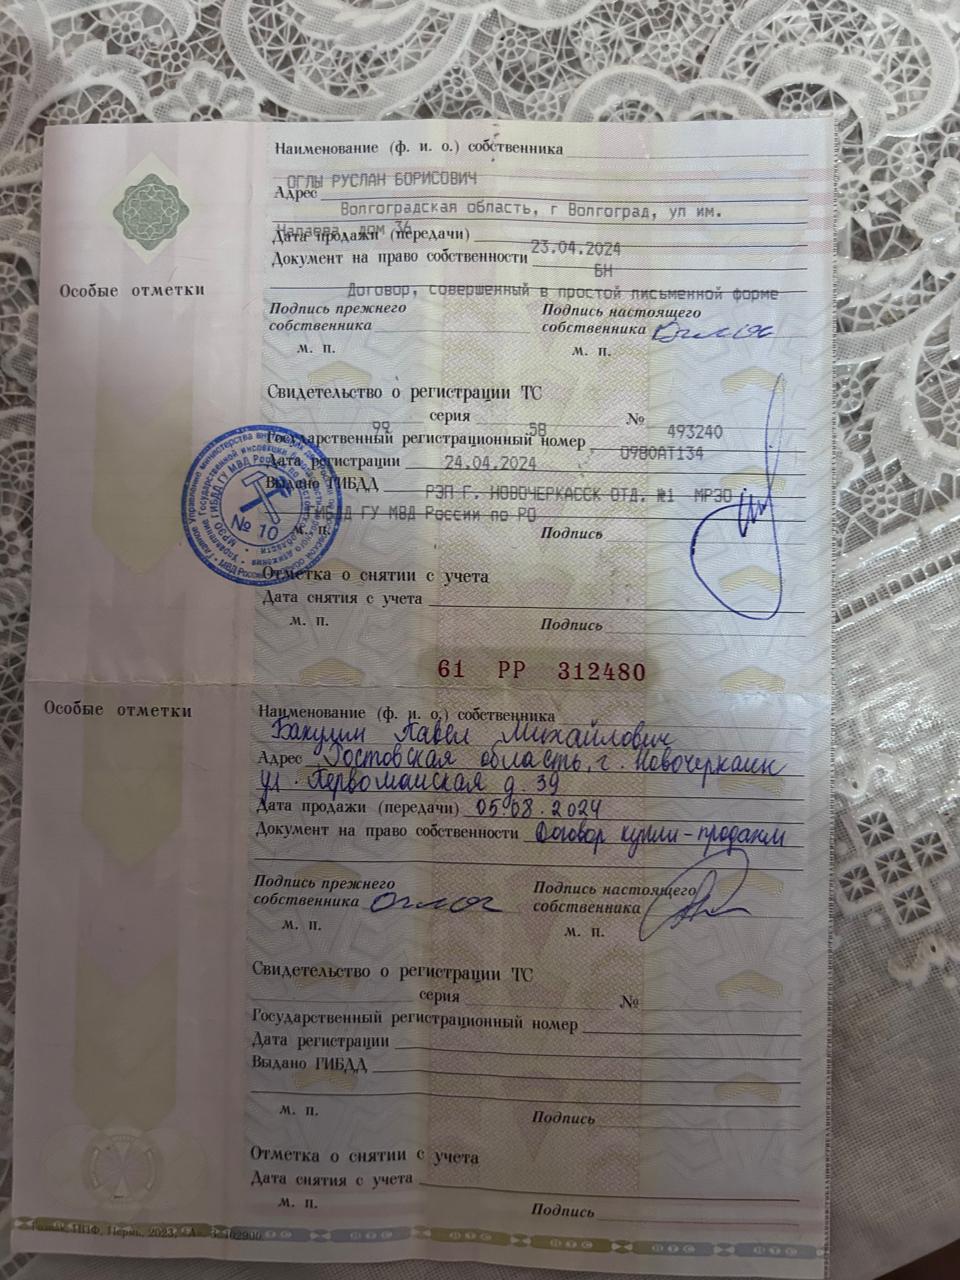 Наименование (ф. и. о.) собственника
ОГЛЫ РУСЛАН БОРИСОВИЧ
Адрес
Волгоградская область, г Волгоград, ул им.
дом 36
Дата продажи (передачи) 23.04.2024
Документ на право собственности
БН
Договор, совершенный в простой письменной форме
Особые отметки
Подпись прежнего собственника
Подпись настоящего собственника
м. п.
м. п.
Свидетельство о регистрации ТС
99 58 серия № 493240
Государственный регистрационный номер О980АТ134
Дата регистрации 24.04.2024
Выдано ГИБДД РЭП Г. НОВОЧЕРКАССК ОТД. №1 МРЭО
ГИБДД ГУ МВД России по РО
№ 10
м. п.
Подпись
Отметка о снятии с учета
Дата снятия с учета
м. п.
Подпись
61 РР 312480
Особые отметки
Наименование (ф. и. о.) собственника
Бакулин Павел Михайлович
Адрес Ростовская область, г. Новочеркасск
ул. Первомайская д. 39
Дата продажи (передачи) 05.08.2024
Документ на право собственности Договор купли-продажи
Подпись прежнего собственника
Подпись настоящего собственника
м. п.
м. п.
Свидетельство о регистрации ТС
серия №
Государственный регистрационный номер
Дата регистрации
Выдано ГИБДД
м. п.
Подпись
Отметка о снятии с учета
Дата снятия с учета
м. п.
Подпись
Пермь, 2023,